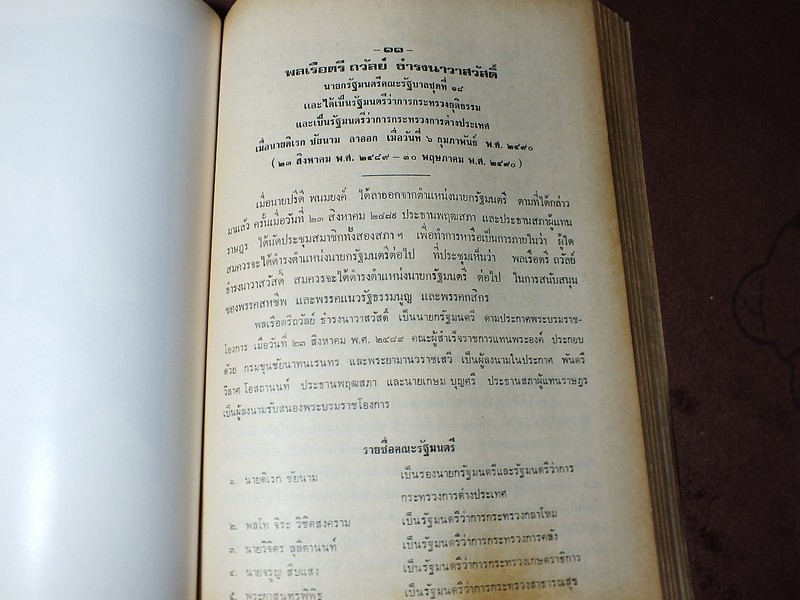 – ๑๑ –
พลเรือตรี ถวัลย์ ธำรงนาวาสวัสดิ์
นายกรัฐมนตรีคณะรัฐบาลชุดที่ ๑๘
และได้เป็นรัฐมนตรีว่าการกระทรวงยุติธรรม
และเป็นรัฐมนตรีว่าการกระทรวงการต่างประเทศ
เมื่อนายดิเรก ชัยนาม ลาออก เมื่อวันที่ ๖ กุมภาพันธ์ พ.ศ. ๒๔๙๐
( ๒๓ สิงหาคม พ.ศ. ๒๔๘๙ – ๓๐ พฤษภาคม พ.ศ. ๒๔๙๐ )
เมื่อนายปรีดี พนมยงค์ ได้ลาออกจากตำแหน่งนายกรัฐมนตรี ตามที่ได้กล่าว
มาแล้ว ครั้นเมื่อวันที่ ๒๓ สิงหาคม ๒๔๘๙ ประธานพฤฒสภา และประธานสภาผู้แทน
ราษฎร ได้นัดประชุมสมาชิกทั้งสองสภา ฯ เพื่อทำการหารือเป็นการภายในว่า ผู้ใด
สมควรจะได้ดำรงตำแหน่งนายกรัฐมนตรีต่อไป ที่ประชุมเห็นว่า พลเรือตรี ถวัลย์
ธำรงนาวาสวัสดิ์ สมควรจะได้ดำรงตำแหน่งนายกรัฐมนตรี ต่อไป ในการสนับสนุน
ของพรรคสหชีพ และพรรคแนวรัฐธรรมนูญ และพรรคกสิกร
พลเรือตรีถวัลย์ ธำรงนาวาสวัสดิ์ เป็นนายกรัฐมนตรี ตามประกาศพระบรมราช-
โองการ เมื่อวันที่ ๒๓ สิงหาคม พ.ศ. ๒๔๘๙ คณะผู้สำเร็จราชการแทนพระองค์ ประกอบ
ด้วย กรมขุนชัยนาทนเรนทร และพระยามานวราชเสวี เป็นผู้ลงนามในประกาศ พันตรี
วิลาศ โอสถานนท์ ประธานพฤฒสภา และนายเกษม บุญศรี ประธานสภาผู้แทนราษฎร
เป็นผู้ลงนามรับสนองพระบรมราชโองการ
รายชื่อคณะรัฐมนตรี
๑. นายดิเรก ชัยนาม เป็นรองนายกรัฐมนตรีและรัฐมนตรีว่าการ
กระทรวงการต่างประเทศ
๒. พลโท จิระ วิชิตสงคราม เป็นรัฐมนตรีว่าการกระทรวงกลาโหม
๓. นายวิจิตร ลุลิตานนท์ เป็นรัฐมนตรีว่าการกระทรวงการคลัง
๔. นายจรูญ สืบแสง เป็นรัฐมนตรีว่าการกระทรวงเกษตราธิการ
๕. พระยาสุนทรพิพิธ เป็นรัฐมนตรีว่าการกระทรวงสาธารณสุข